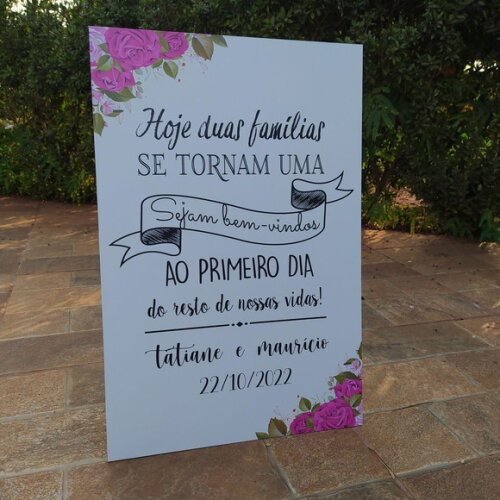 Hoje duas famílias
SE TORNAM UMA
Sejam bem-vindos
AO PRIMEIRO DIA
do resto de nossas vidas!
tatiane e maurício
22/10/2022